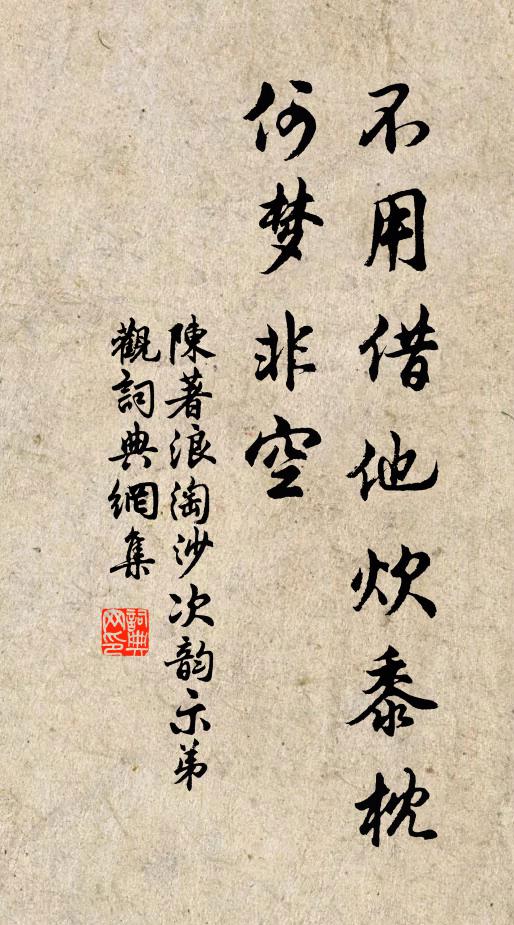 不用借他炊黍枕
何梦非空
陳著浪淘沙次韵示弟觀
詞典網集
詞典网印